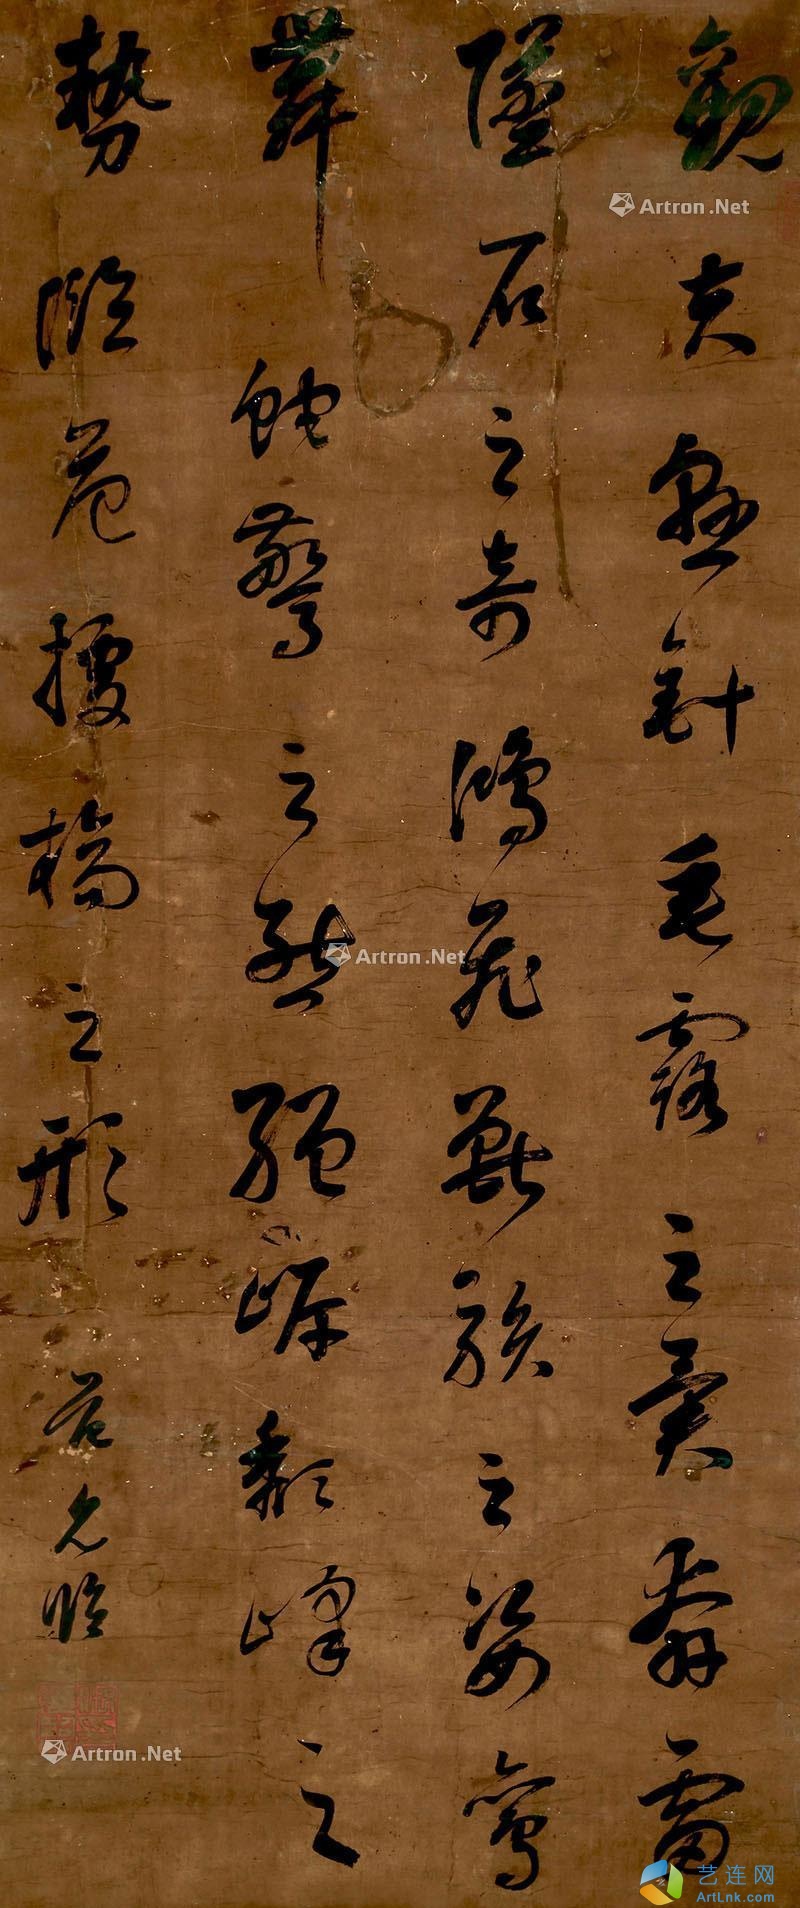 觀夫懸針垂露之異奔雷
墜石之奇鴻飛獸駭之姿鸞
舞蛇驚之態絕岸頹峰之
勢臨危據槁之形 范允臨
Artron.Net
Artron.Net
Artron.Net
艺连网
ArtLnk.com